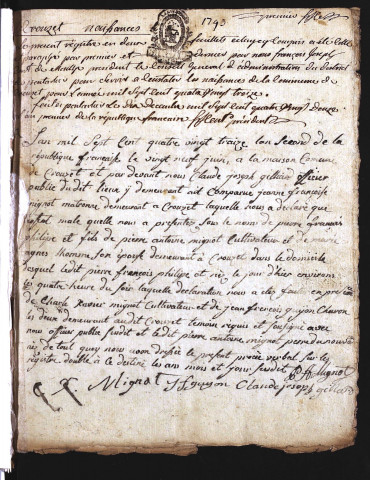 Crouzet naissances 1793 premier feuillet
le present registre en deux feuillets celuy cy compris a été cotté
paraphé par premier et dernier par nous françois joseph
president le Conseil General d'administration du District
de pontarlier pour servir a Constater les naissances de la commune de
Crouzet pour l'année mil sept cent quatre vingt treize
fait a pontarlier le dix decembre mil sept cent quatre vingt douze
an premier de la république francaise president
L'an mil sept cent quatre vingt treize l'an second de la
république francaise le vingt neuf juin, a la maison Comune
de Crouzet et par devant nous Claude joseph officier
public du dit lieu y demeurant est Comparue jeanne francoise
mignot matronne demeurant a Crouzet laquelle nous a déclaré que
l'enfant male quelle nous a presenté sous le nom de pierre francois
philipe est fils de pierre antoine mignot Cultivateur et de marie
agnes lhomme son épouse demeurant a Crouzet dans le domicile
desquel ledit pierre françois philipe est né le jour d'hier environ
les quatre heure du soir laquelle declaration nous a été faite en présence
de Charle Xavier mignot Cultivateur et de jean francois guyon Charon
les deux demeurant audit Crouzet temoin requis et soussigné avec
nous officier public susdit et ledit pierre antoine mignot pere du nouveau
né de tout quoy nous avons dressé le present procès verbal sur les
registre double a le destiné les an mois et jour susdit P A Mignot
C X Mignot J F guyon Claude joseph